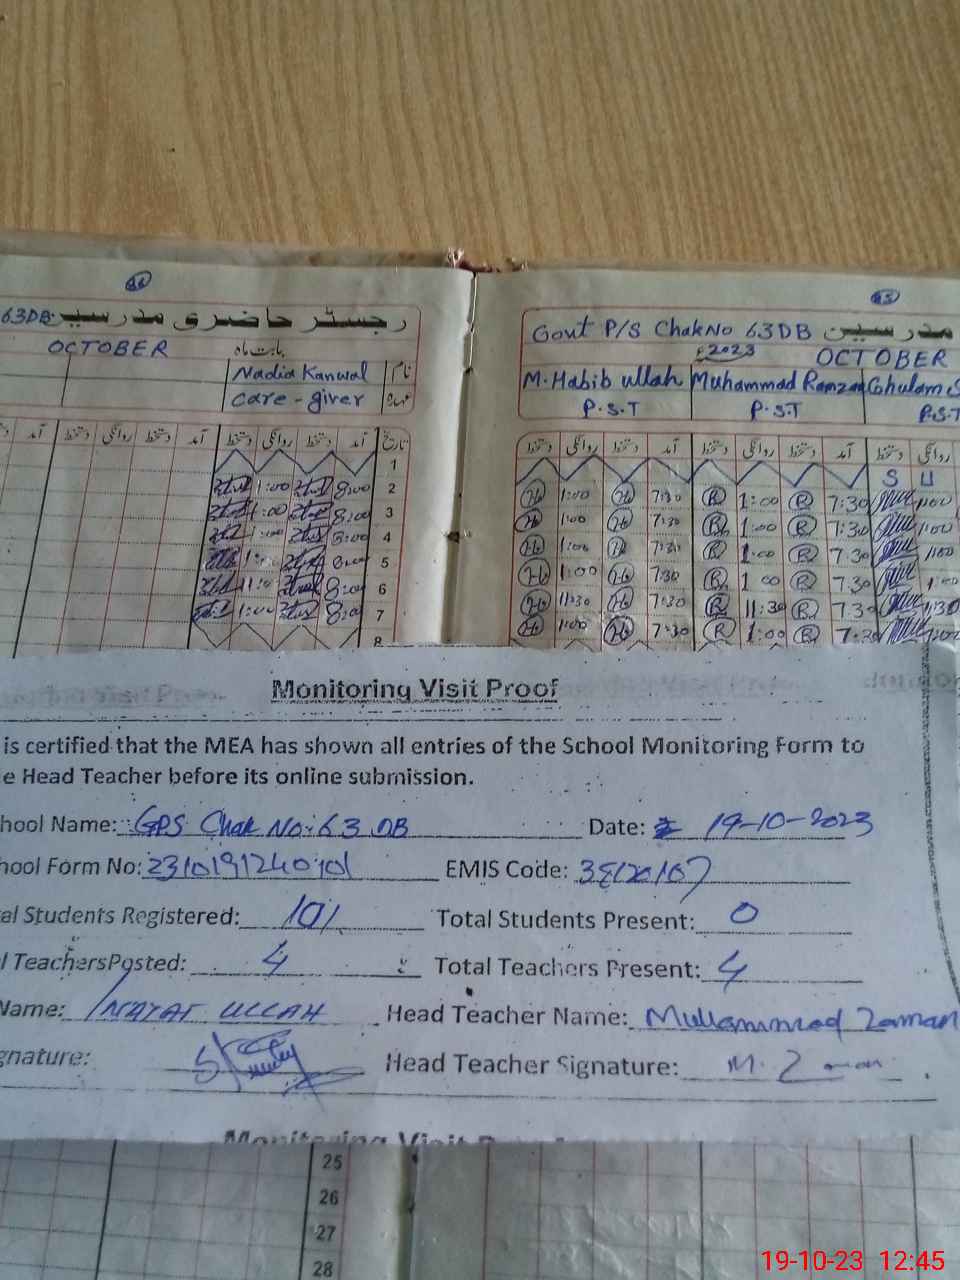 63DB رجسٹر حاضری مدرسین
OCTOBER بابت ماہ
Nadia Kanwal نام
Care - giver عہدہ
آمد دستخط روانگی دستخط آمد دستخط روانگی دستخط تاریخ
1
1:00 8:00 2
1:00 8:00 3
1:00 8:00 4
5
11:00 8:00 6
1:00 8:00 7
8
Govt P/S Chak No 63DB مدرسین
2023 OCTOBER
M. Habib ullah Muhammad Ramzan Ghulam S
P.S.T P.S.T P.S.T
دستخط روانگی دستخط آمد دستخط روانگی دستخط آمد دستخط روانگی
S U
1:00 7:30 R 1:00 R 7:30 1:00
1:00 7:30 R 1:00 R 7:30 1:00
1:00 7:30 R 1:00 R 7:30 1:00
1:00 7:30 R 1:00 R 7:30 1:00
11:30 7:30 R 11:30 R 7:30 11:30
1:00 7:30 R 1:00 R 7:30 1:00
Monitoring Visit Proof
is certified that the MEA has shown all entries of the School Monitoring Form to
e Head Teacher before its online submission.
hool Name: GPS Chak No: 63 DB Date: 19-10-2023
hool Form No: EMIS Code:
al Students Registered: 101 Total Students Present: 0
l TeachersPosted: 4 Total Teachers Present: 4
Name: INAYAT ULLAH Head Teacher Name: Muhammad Zaman
gnature: Head Teacher Signature: M. Zaman
Monitoring Visit
25
26
27
28
19-10-23 12:45